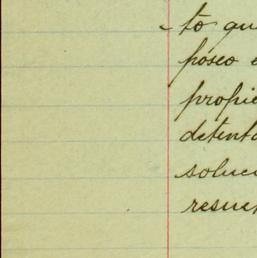 to que
poseo e
propie
detenta
soluci
resuel